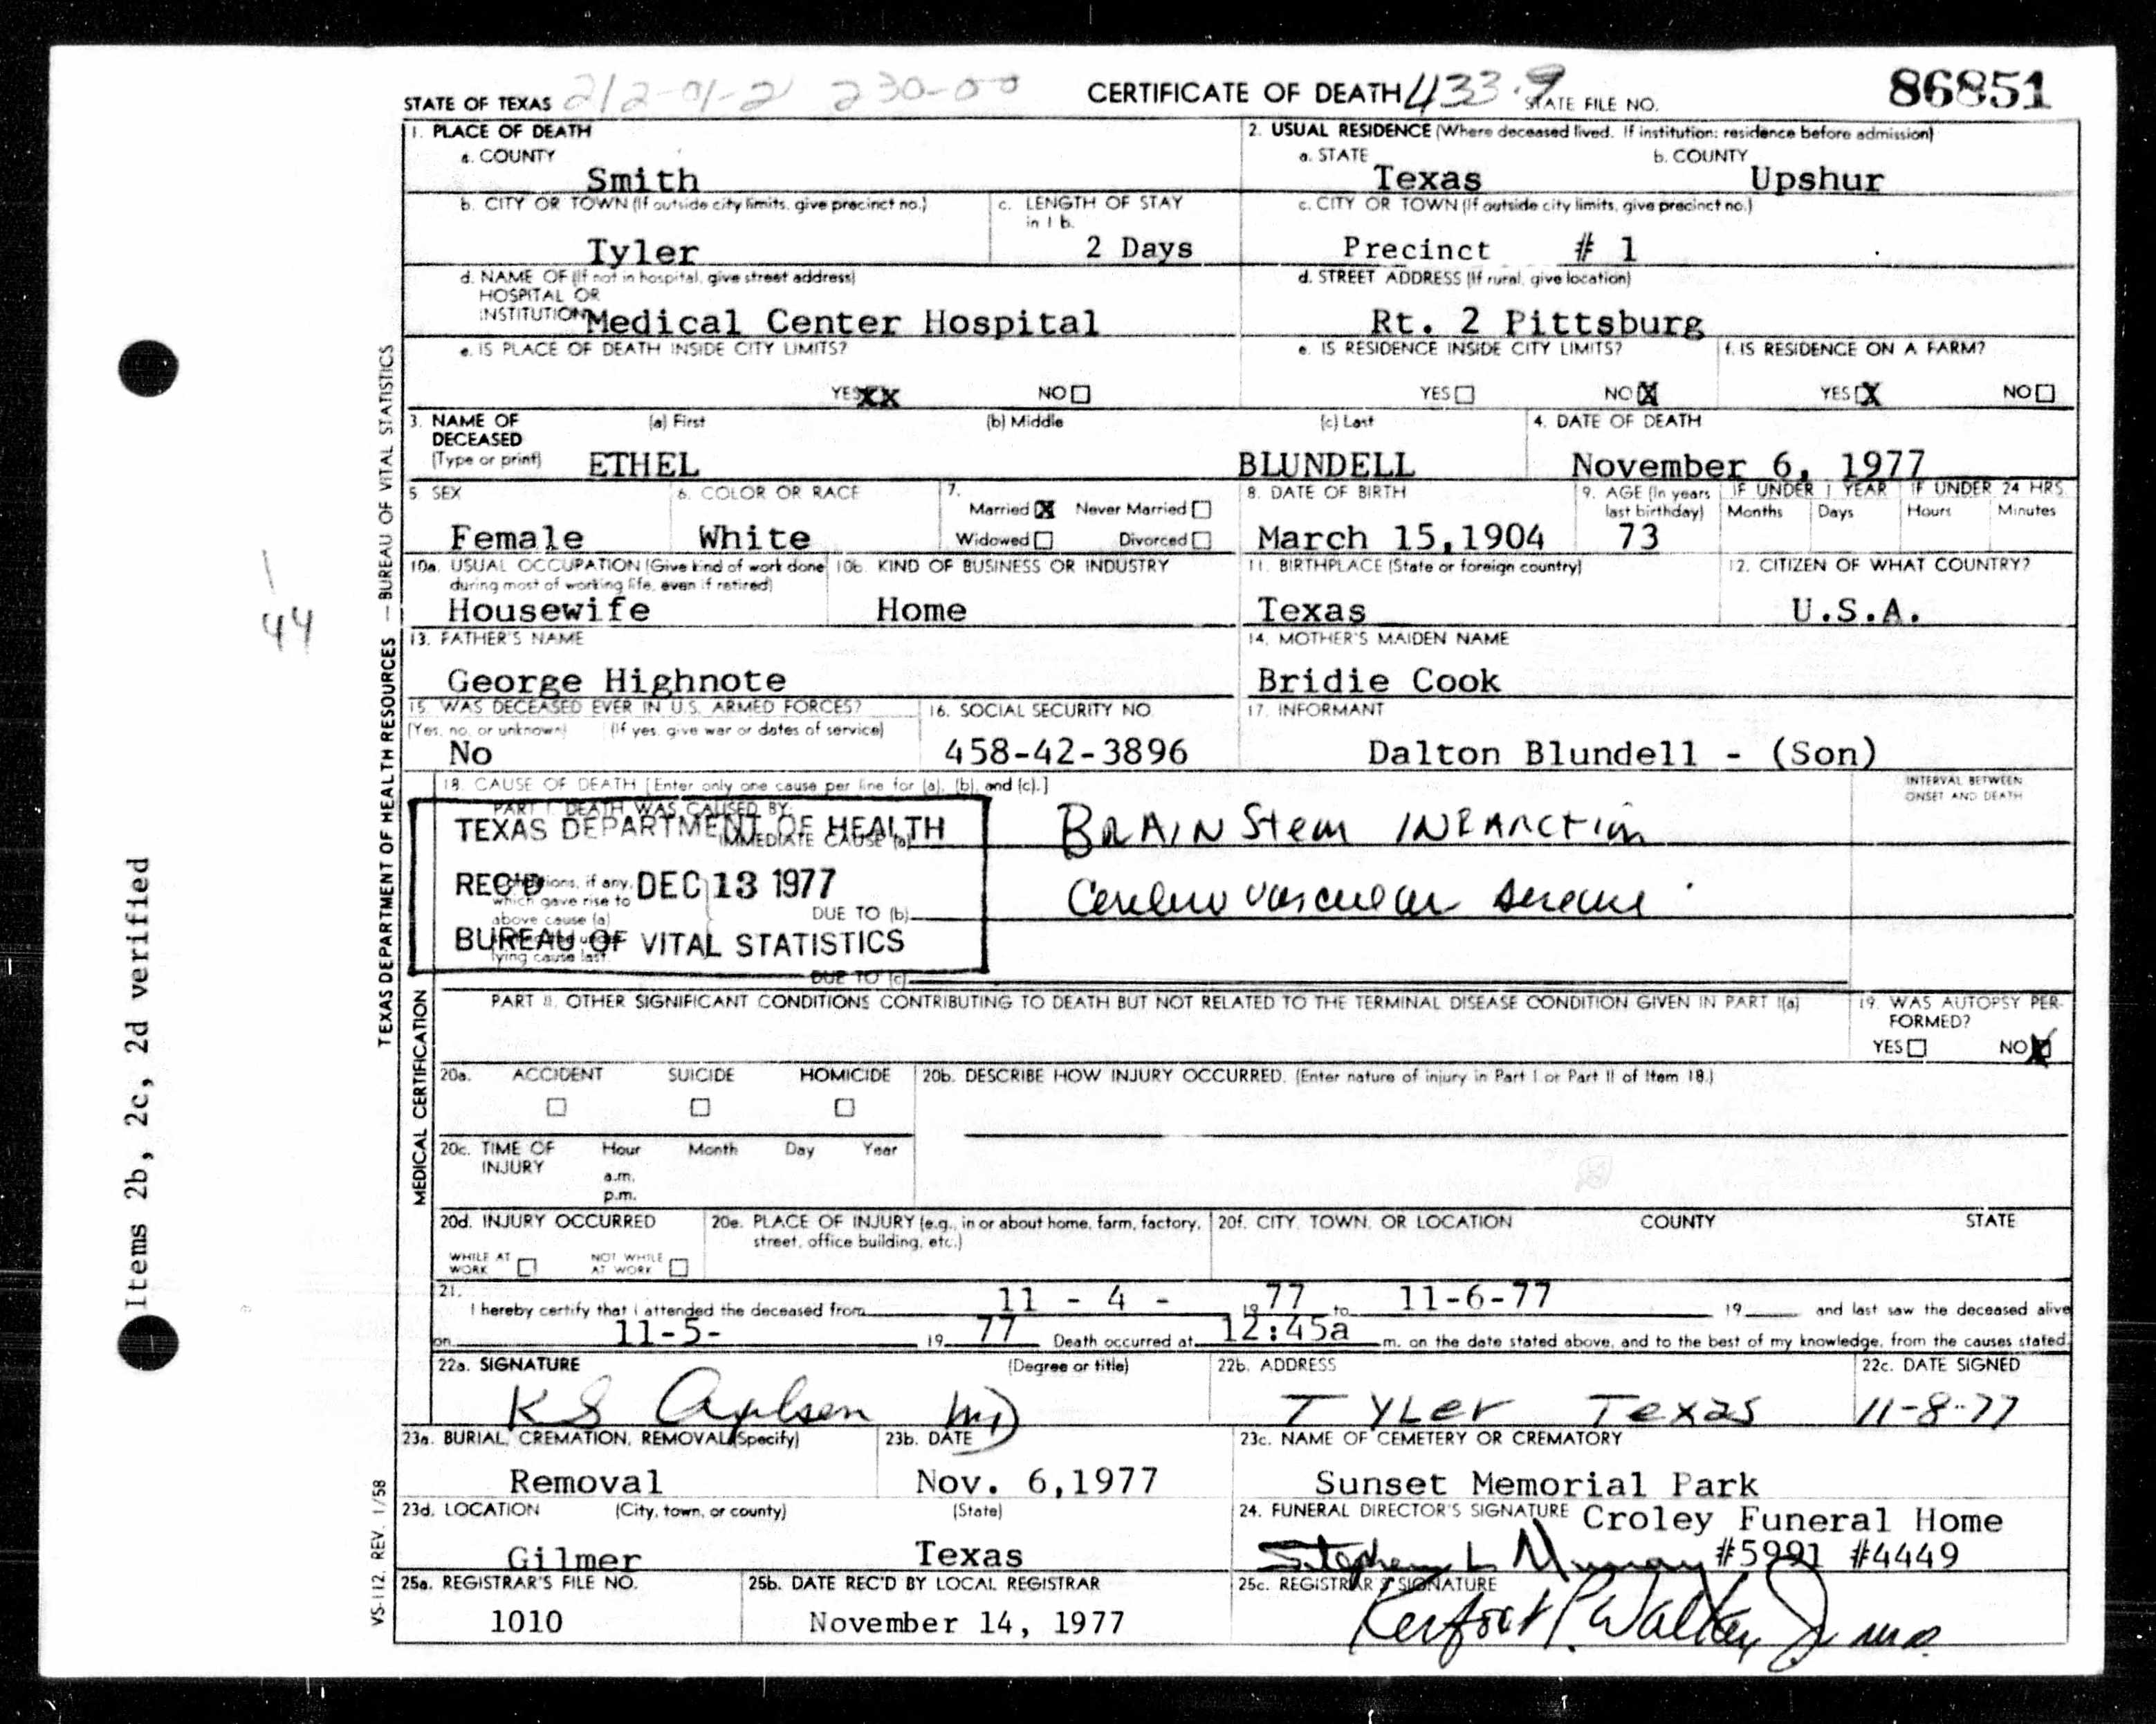 STATE OF TEXAS 212-01-2 230-00 CERTIFICATE OF DEATH 433.9 STATE FILE NO. 86851
1. PLACE OF DEATH
a. COUNTY
Smith
2. USUAL RESIDENCE (Where deceased lived. If institution: residence before admission)
a. STATE
Texas
b. COUNTY
Upshur
b. CITY OR TOWN (If outside city limits, give precinct no.)
Tyler
c. LENGTH OF STAY
in 1 b.
2 Days
c. CITY OR TOWN (If outside city limits, give precinct no.)
Precinct # 1
d. NAME OF (If not in hospital, give street address)
HOSPITAL OR
INSTITUTION Medical Center Hospital
d. STREET ADDRESS (If rural, give location)
Rt. 2 Pittsburg
e. IS PLACE OF DEATH INSIDE CITY LIMITS?
YES XX NO
e. IS RESIDENCE INSIDE CITY LIMITS?
YES NO X
f. IS RESIDENCE ON A FARM?
YES X NO
3. NAME OF
DECEASED
(Type or print)
(a) First (b) Middle (c) Last
ETHEL BLUNDELL
4. DATE OF DEATH
November 6, 1977
5. SEX
Female
6. COLOR OR RACE
White
7.
Married X Never Married
Widowed Divorced
8. DATE OF BIRTH
March 15,1904
9. AGE (In years
last birthday)
73
IF UNDER 1 YEAR
Months Days
IF UNDER 24 HRS
Hours Minutes
10a. USUAL OCCUPATION (Give kind of work done
during most of working life, even if retired)
Housewife
10b. KIND OF BUSINESS OR INDUSTRY
Home
11. BIRTHPLACE (State or foreign country)
Texas
12. CITIZEN OF WHAT COUNTRY?
U.S.A.
13. FATHER'S NAME
George Highnote
14. MOTHER'S MAIDEN NAME
Bridie Cook
15. WAS DECEASED EVER IN U.S. ARMED FORCES?
(Yes, no, or unknown) (If yes, give war or dates of service)
No
16. SOCIAL SECURITY NO.
458-42-3896
17. INFORMANT
Dalton Blundell - (Son)
18. CAUSE OF DEATH [Enter only one cause per line for (a), (b), and (c).]
INTERVAL BETWEEN
ONSET AND DEATH
PART I. DEATH WAS CAUSED BY:
IMMEDIATE CAUSE (a) BRAIN Stem INFARCTION
TEXAS DEPARTMENT OF HEALTH
REC'D DEC 13 1977
BUREAU OF VITAL STATISTICS
Conditions, if any,
which gave rise to
above cause (a)
lying cause last.
DUE TO (b) Cerebrovascular disease
DUE TO (c)
PART II. OTHER SIGNIFICANT CONDITIONS CONTRIBUTING TO DEATH BUT NOT RELATED TO THE TERMINAL DISEASE CONDITION GIVEN IN PART I(a)
19. WAS AUTOPSY PER-
FORMED?
YES NO X
20a. ACCIDENT SUICIDE HOMICIDE
20b. DESCRIBE HOW INJURY OCCURRED. (Enter nature of injury in Part I or Part II of Item 18.)
20c. TIME OF
INJURY
Hour Month Day Year
a.m.
p.m.
20d. INJURY OCCURRED
WHILE AT
WORK
NOT WHILE
AT WORK
20e. PLACE OF INJURY (e.g., in or about home, farm, factory,
street, office building, etc.)
20f. CITY, TOWN, OR LOCATION COUNTY STATE
21.
I hereby certify that I attended the deceased from 11 - 4 - 19 77 to 11-6-77 19 and last saw the deceased alive
on 11-5- 19 77 Death occurred at 12:45a m. on the date stated above, and to the best of my knowledge, from the causes stated.
22a. SIGNATURE (Degree or title)
MD
22b. ADDRESS
Tyler Texas
22c. DATE SIGNED
11-8-77
23a. BURIAL, CREMATION, REMOVAL (Specify)
Removal
23b. DATE
Nov. 6,1977
23c. NAME OF CEMETERY OR CREMATORY
Sunset Memorial Park
23d. LOCATION (City, town, or county) (State)
Gilmer Texas
24. FUNERAL DIRECTOR'S SIGNATURE Croley Funeral Home
Stephen L #5991 #4449
25a. REGISTRAR'S FILE NO.
1010
25b. DATE REC'D BY LOCAL REGISTRAR
November 14, 1977
25c. REGISTRAR'S SIGNATURE
Walker Jr MD
TEXAS DEPARTMENT OF HEALTH RESOURCES — BUREAU OF VITAL STATISTICS
MEDICAL CERTIFICATION
VS-112, REV. 1/58
Items 2b, 2c, 2d verified
44